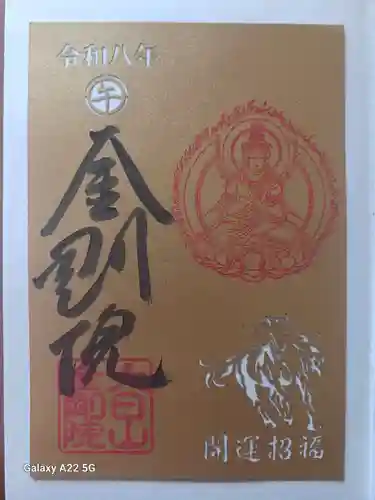 令和八年
午
金剛院
開運招福
Galaxy A22 5G